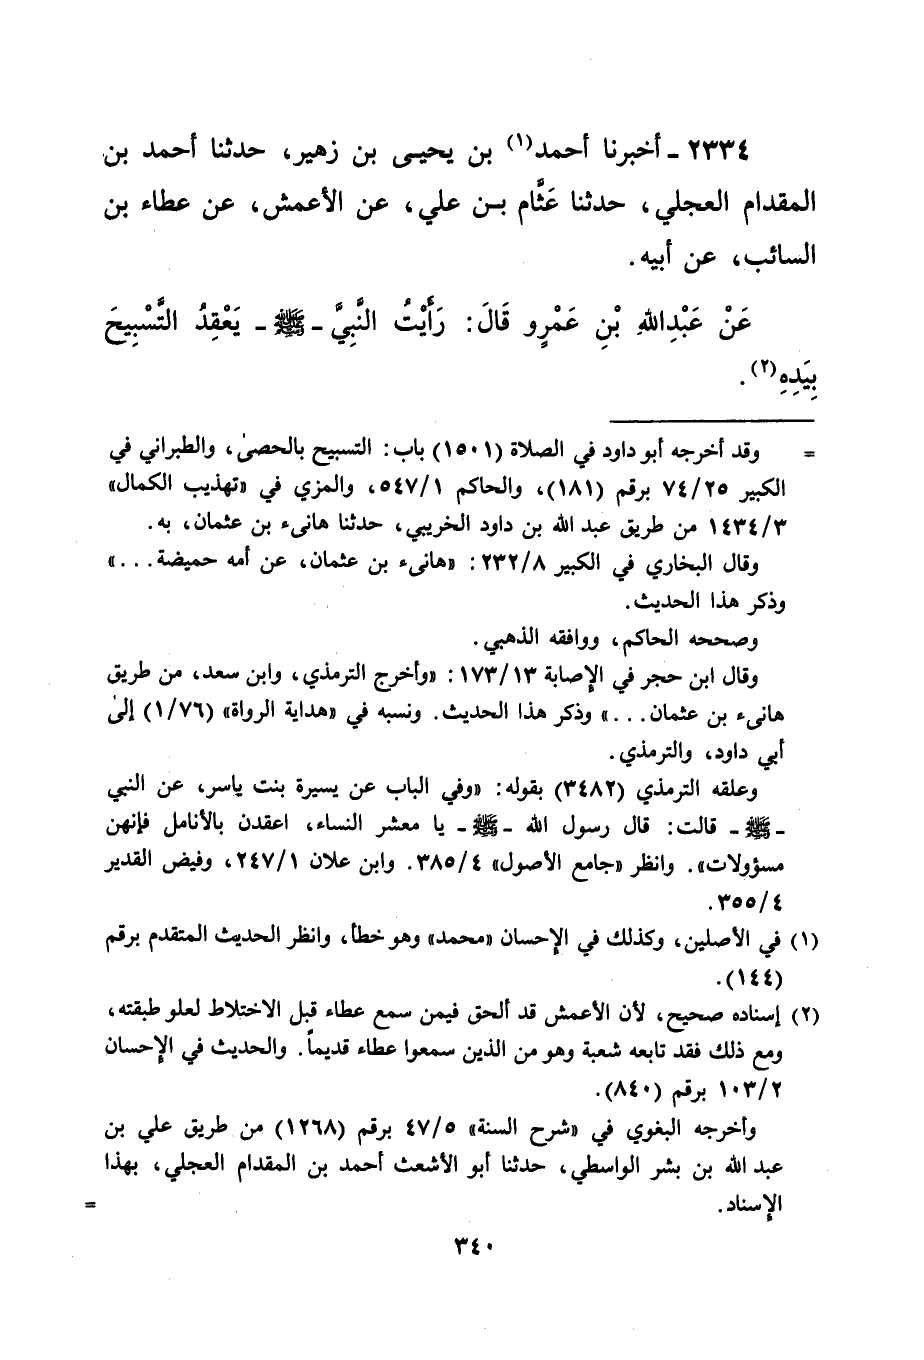 ٢٣٣٤ - أخبرنا أحمد(١) بن يحيى بن زهير، حدثنا أحمد بن
المقدام العجلي، حدثنا عَثَّام بن علي، عن الأعمش، عن عطاء بن
السائب، عن أبيه.
عَنْ عَبْدِاللهِ بْنِ عَمْرٍو قَالَ: رَأَيْتُ النَّبِيَّ - ﷺ - يَعْقِدُ التَّسْبِيحَ
بِيَدِهِ(٢).
= وقد أخرجه أبو داود في الصلاة (١٥٠١) باب: التسبيح بالحصىٰ، والطبراني في
الكبير ٧٤/٢٥ برقم (١٨١)، والحاكم ٥٤٧/١، والمزي في «تهذيب الكمال»
١٤٣٤/٣ من طريق عبد الله بن داود الخريبي، حدثنا هانىء بن عثمان، به.
وقال البخاري في الكبير ٢٣٢/٨: «هانىء بن عثمان، عن أمه حميضة...»
وذكر هذا الحديث.
وصححه الحاكم، ووافقه الذهبي.
وقال ابن حجر في الإصابة ١٧٣/١٣: «وأخرج الترمذي، وابن سعد، من طريق
هانىء بن عثمان...» وذكر هذا الحديث. ونسبه في «هداية الرواة» (١/٧٦) إلىٰ
أبي داود، والترمذي.
وعلقه الترمذي (٣٤٨٢) بقوله: «وفي الباب عن يسيرة بنت ياسر، عن النبي
- ﷺ - قالت: قال رسول الله - ﷺ - يا معشر النساء، اعقدن بالأنامل فإنهن
مسؤولات». وانظر «جامع الأصول» ٣٨٥/٤. وابن علان ٢٤٧/١، وفيض القدير
٣٥٥/٤.
(١) في الأصلين، وكذلك في الإحسان «محمد» وهو خطأ، وانظر الحديث المتقدم برقم
(١٤٤).
(٢) إسناده صحيح، لأن الأعمش قد ألحق فيمن سمع عطاء قبل الاختلاط لعلو طبقته،
ومع ذلك فقد تابعه شعبة وهو من الذين سمعوا عطاء قديماً. والحديث في الإحسان
١٠٣/٢ برقم (٨٤٠).
وأخرجه البغوي في «شرح السنة» ٤٧/٥ برقم (١٢٦٨) من طريق علي بن
عبد الله بن بشر الواسطي، حدثنا أبو الأشعث أحمد بن المقدام العجلي، بهذا
الإسناد. =
٣٤٠